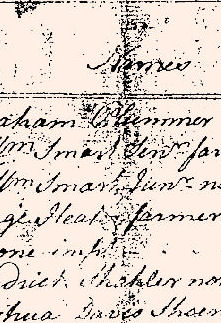 Names
aham Plummer
Wm Smart Senr far
Wm Smart Junr n
ge Heal farmer
one imp
drick Shakler no
hua Davis Shoem